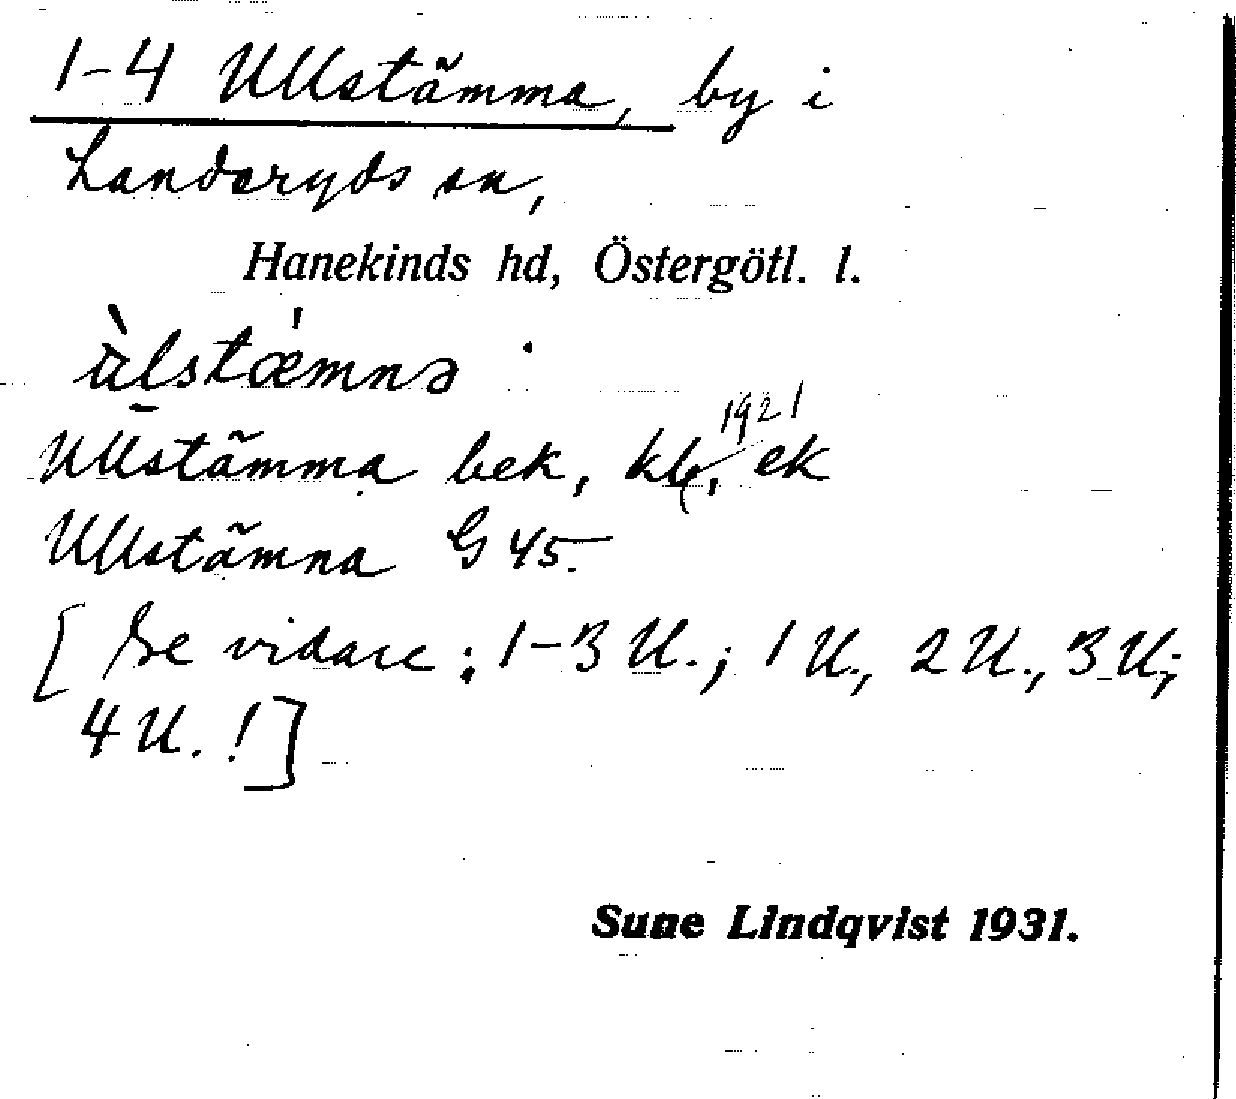 1-4 Ullstämma, by i
Landeryds sn,
Hanekinds hd, Östergötl. l.
ùlstæ̀mnə
Ullstämma bek, kb, 1921 ek
Ullstämna G 45.
[Se vidare: 1-3 U.; 1 U., 2 U., 3 U.;
4 U. !]
Sune Lindqvist 1931.